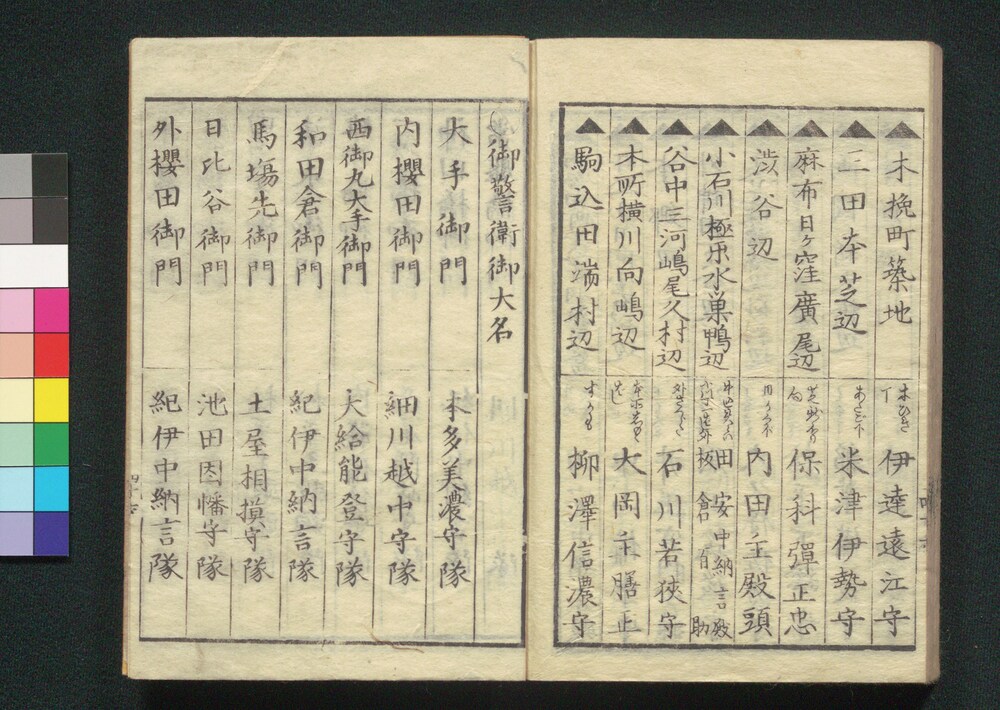 ▲木挽町築地 木ひき丁 伊達遠江守
▲三田本芝辺 米津伊勢守
▲麻布日ヶ窪廣尾辺 保科彈正忠
▲渋谷辺 内田主殿頭
▲小石川極乐水巣鴨辺 田安中納言殿
板倉 助
▲谷中三河嶋尾久村辺 石川若狹守
▲本所横川向嶋辺 大岡主膳正
▲駒込田端村辺 柳澤信濃守
御警衛御大名
大手御門 本多美濃守隊
内櫻田御門 細川越中守隊
西御丸大手御門 大給能登守隊
和田倉御門 紀伊中納言隊
馬塲先御門 土屋相摸守隊
日比谷御門 池田因幡守隊
外櫻田御門 紀伊中納言隊